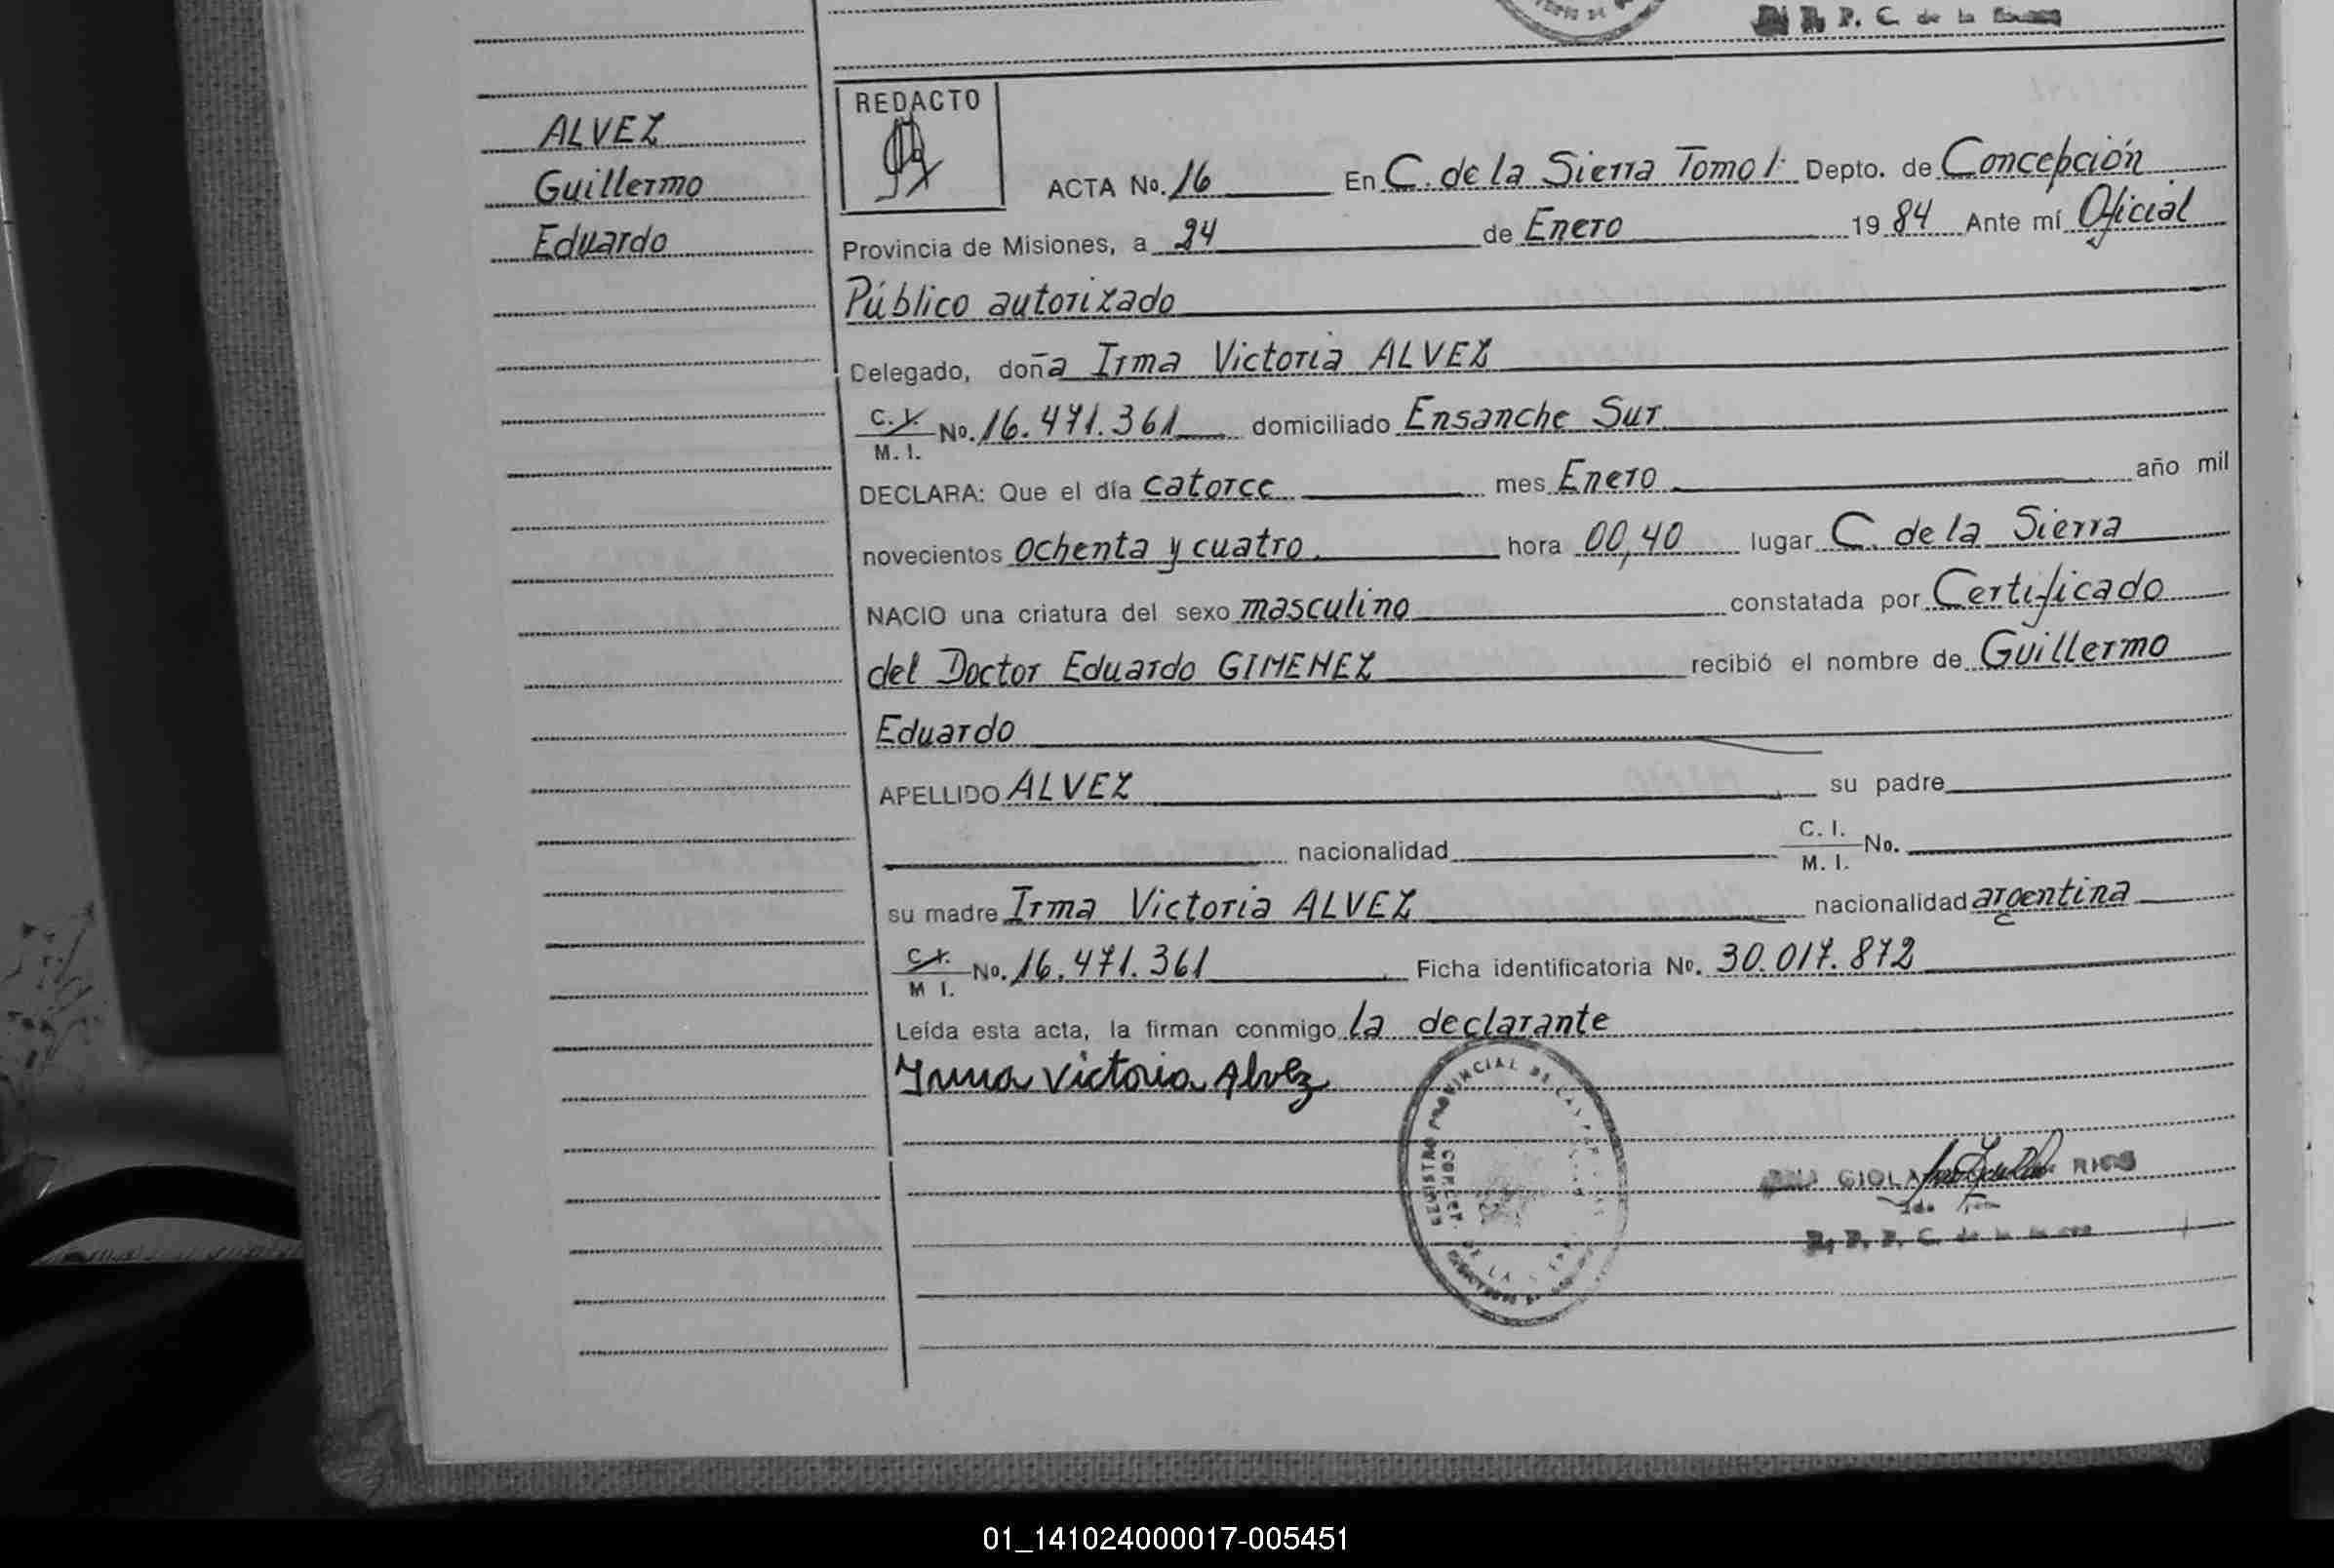 P. C. de la
ALVEZ
Guillermo
Eduardo
REDACTO
ACTA No. 16 En C. de la Sierra Tomo I Depto. de Concepción
Provincia de Misiones, a 24 de Enero 1984 Ante mí Oficial
Público autorizado
Delegado, doña Irma Victoria ALVEZ
C. I. M. I. No. 16.471.361 domiciliado Ensanche Sur.
DECLARA: Que el día catorce mes Enero año mil
novecientos ochenta y cuatro. hora 00,40 lugar C. de la Sierra
NACIO una criatura del sexo masculino constatada por Certificado
del Doctor Eduardo GIMENEZ recibió el nombre de Guillermo
Eduardo
APELLIDO ALVEZ su padre
nacionalidad C. I. M. I. No.
su madre Irma Victoria ALVEZ nacionalidad argentina
C. I. M I. No. 16.471.361 Ficha identificatoria No. 30.017.872
Leída esta acta, la firman conmigo la declarante
Irma Victoria Alvez
REGISTRO PROVINCIAL DE LAS
RIOS
P. C. de la
01_141024000017-005451